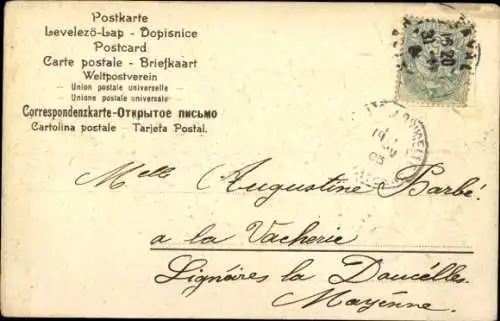 Postkarte
Levelezö-Lap - Dopisnice
Postcard
Carte postale - Briefkaart
Weltpostverein
Union postale universelle
Unione postale universale
Correspondenzkarte-Открытое письмо
Cartolina postale - Tarjeta Postal.
LAVAL
Melle Augustine Barbé.
a la Vacherie
Lignéires la Doucélles.
Mayénne.